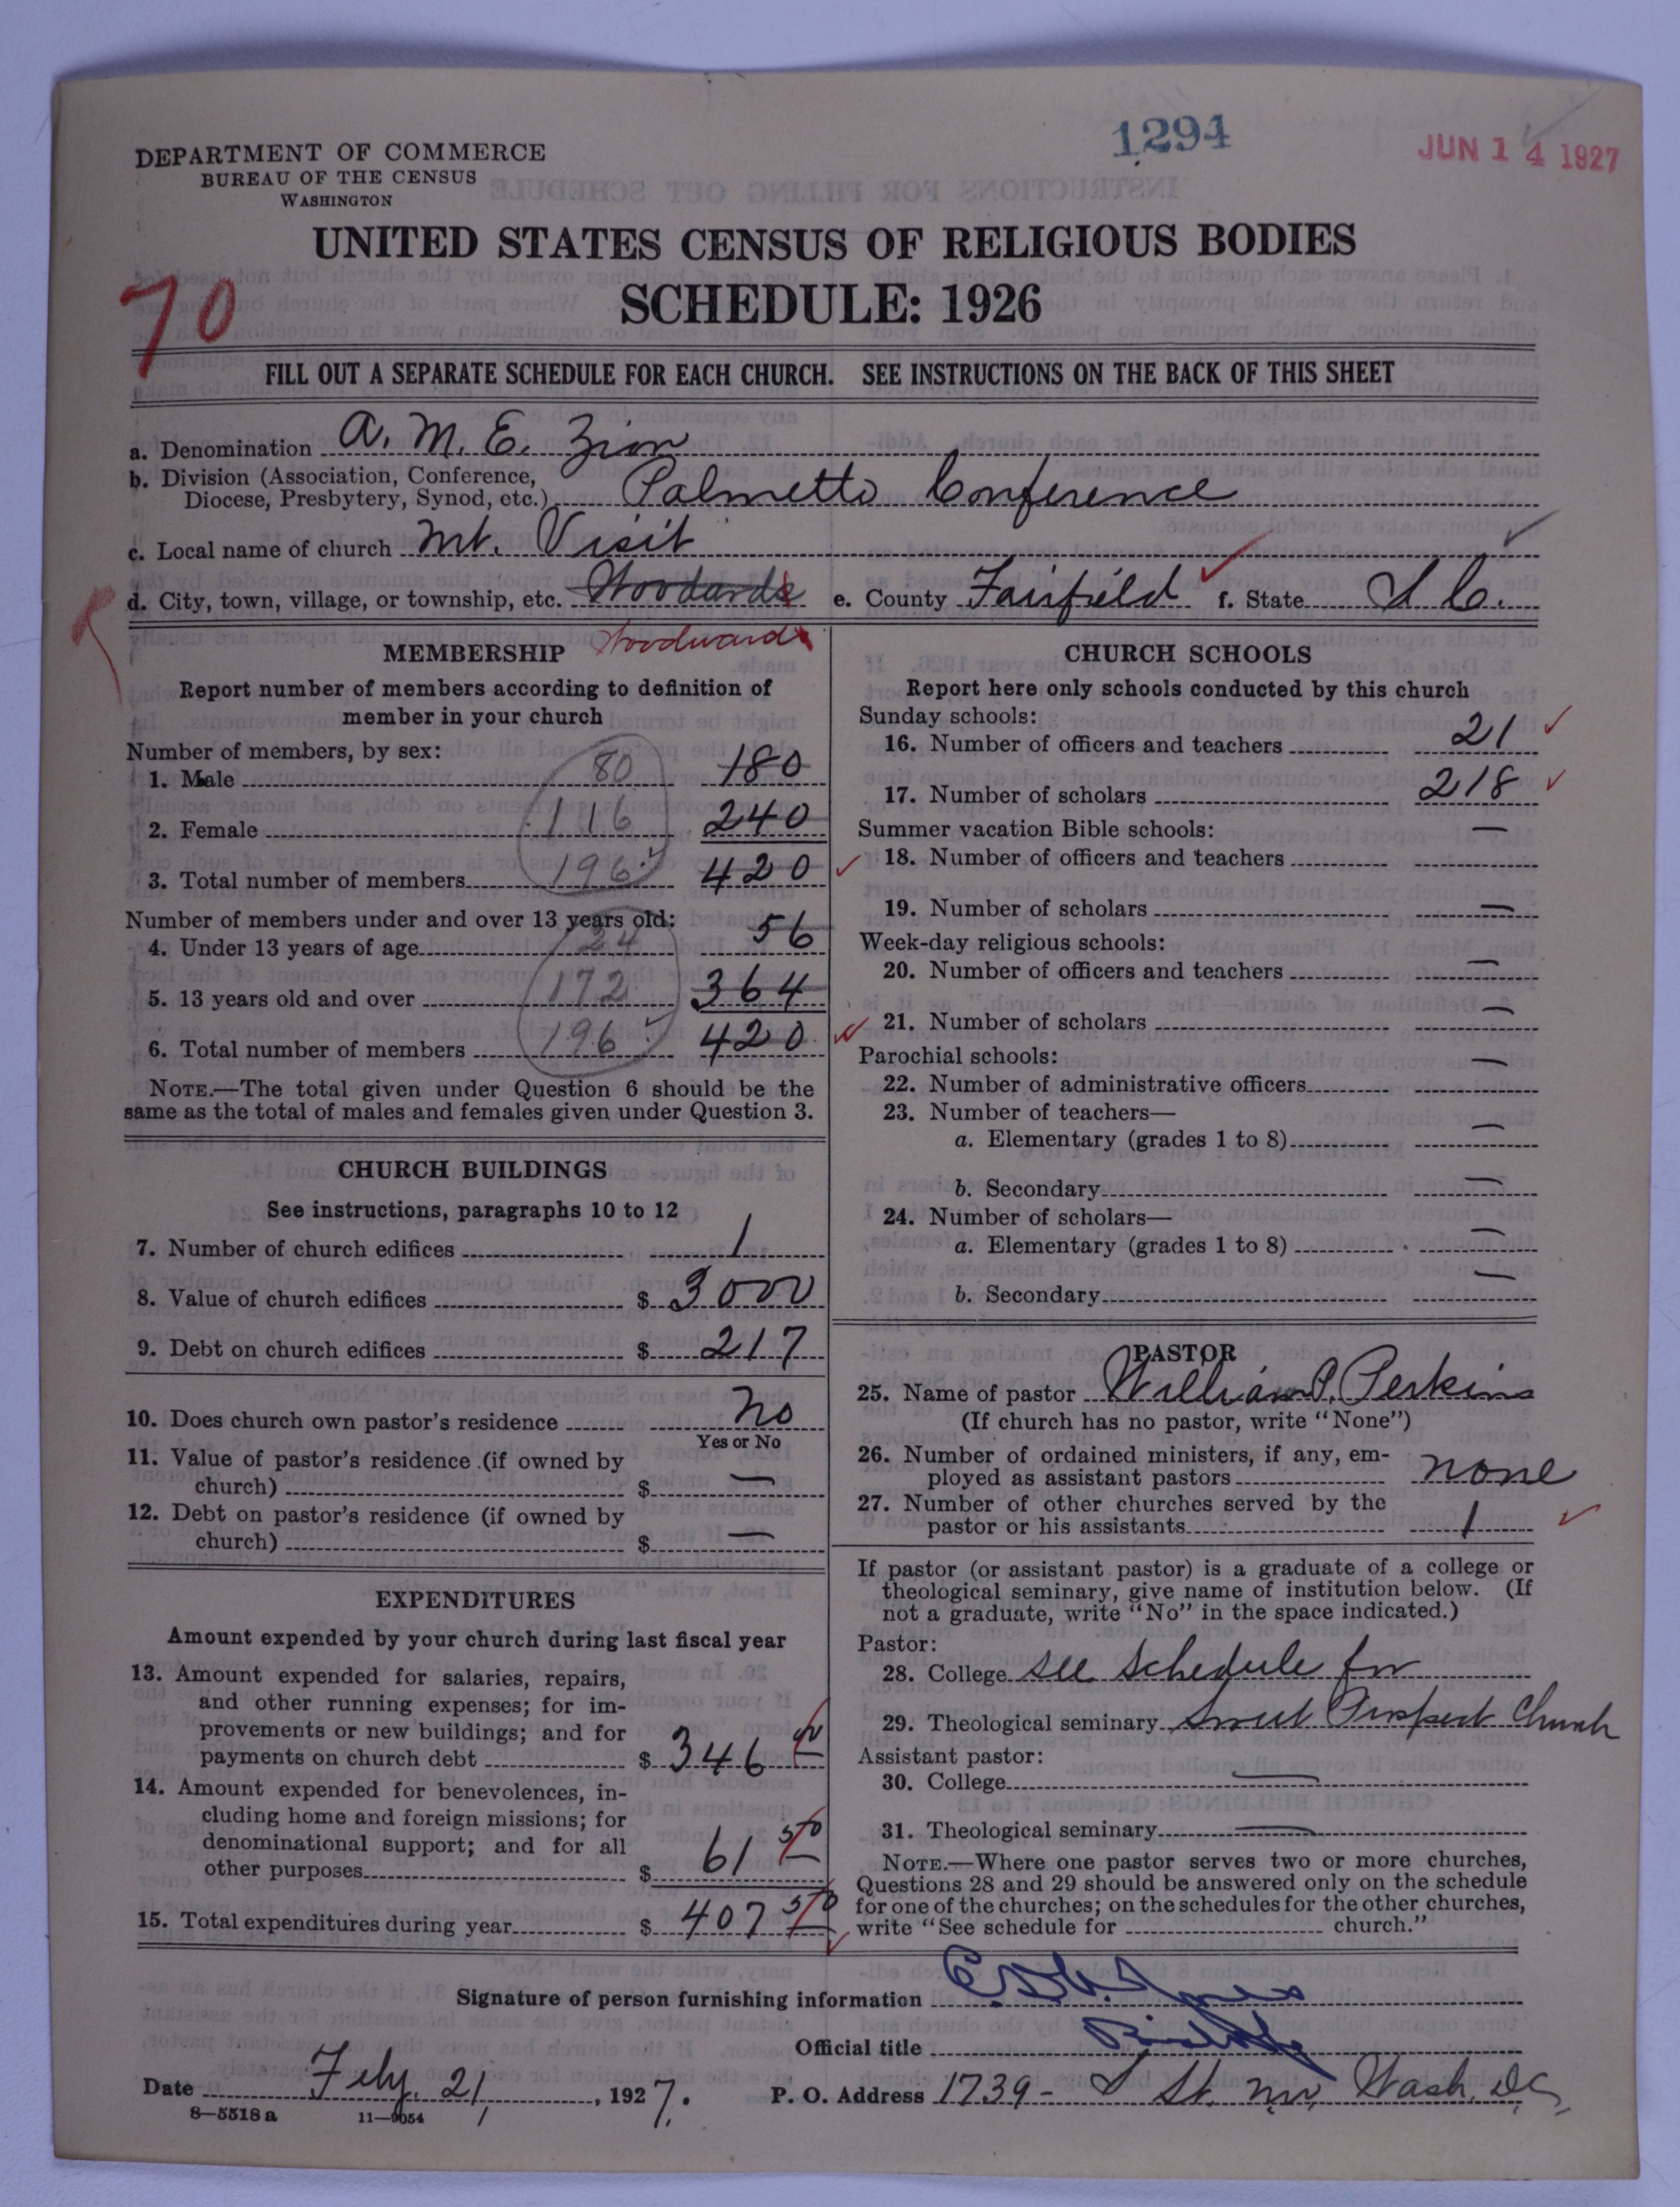 1294
JUN 14 1927
DEPARTMENT OF COMMERCE
BUREAU OF THE CENSUS
WASHINGTON
UNITED STATES CENSUS OF RELIGIOUS BODIES
SCHEDULE: 1926
70
FILL OUT A SEPARATE SCHEDULE FOR EACH CHURCH. SEE INSTRUCTIONS ON THE BACK OF THIS SHEET
a. Denomination A. M. E. Zion
b. Division (Association, Conference,
Diocese, Presbytery, Synod, etc.) Palmetto Conference
c. Local name of church Mt. Visit
d. City, town, village, or township, etc. Woodards e. County Fairfield f. State S C.
Woodward
MEMBERSHIP
Report number of members according to definition of
member in your church
Number of members, by sex:
1. Male 80 180
2. Female 116 240
3. Total number of members 196 420
Number of members under and over 13 years old:
4. Under 13 years of age 24 56
5. 13 years old and over 172 364
6. Total number of members 196 420
NOTE.—The total given under Question 6 should be the
same as the total of males and females given under Question 3.
CHURCH BUILDINGS
See instructions, paragraphs 10 to 12
7. Number of church edifices 1
8. Value of church edifices $ 3000
9. Debt on church edifices $ 217
10. Does church own pastor's residence No
Yes or No
11. Value of pastor's residence (if owned by
church) $ —
12. Debt on pastor's residence (if owned by
church) $ —
EXPENDITURES
Amount expended by your church during last fiscal year
13. Amount expended for salaries, repairs,
and other running expenses; for im-
provements or new buildings; and for
payments on church debt $ 346
14. Amount expended for benevolences, in-
cluding home and foreign missions; for
denominational support; and for all
other purposes $ 61 50
15. Total expenditures during year $ 407 50
CHURCH SCHOOLS
Report here only schools conducted by this church
Sunday schools:
16. Number of officers and teachers 21
17. Number of scholars 218
Summer vacation Bible schools: —
18. Number of officers and teachers
19. Number of scholars —
Week-day religious schools:
20. Number of officers and teachers —
21. Number of scholars —
Parochial schools: —
22. Number of administrative officers
23. Number of teachers—
a. Elementary (grades 1 to 8) —
b. Secondary —
24. Number of scholars—
a. Elementary (grades 1 to 8) —
b. Secondary —
PASTOR
25. Name of pastor William P. Perkins
(If church has no pastor, write "None")
26. Number of ordained ministers, if any, em-
ployed as assistant pastors none
27. Number of other churches served by the
pastor or his assistants 1
If pastor (or assistant pastor) is a graduate of a college or
theological seminary, give name of institution below. (If
not a graduate, write "No" in the space indicated.)
Pastor:
28. College see schedule for
29. Theological seminary Sweet Prospect Church
Assistant pastor:
30. College —
31. Theological seminary —
NOTE.—Where one pastor serves two or more churches,
Questions 28 and 29 should be answered only on the schedule
for one of the churches; on the schedules for the other churches,
write "See schedule for church."
Signature of person furnishing information Jones
Official title
Date Feby. 21, 1927. P. O. Address 1739 - S St. NW, Wash. DC,
8—5518a 11—9054